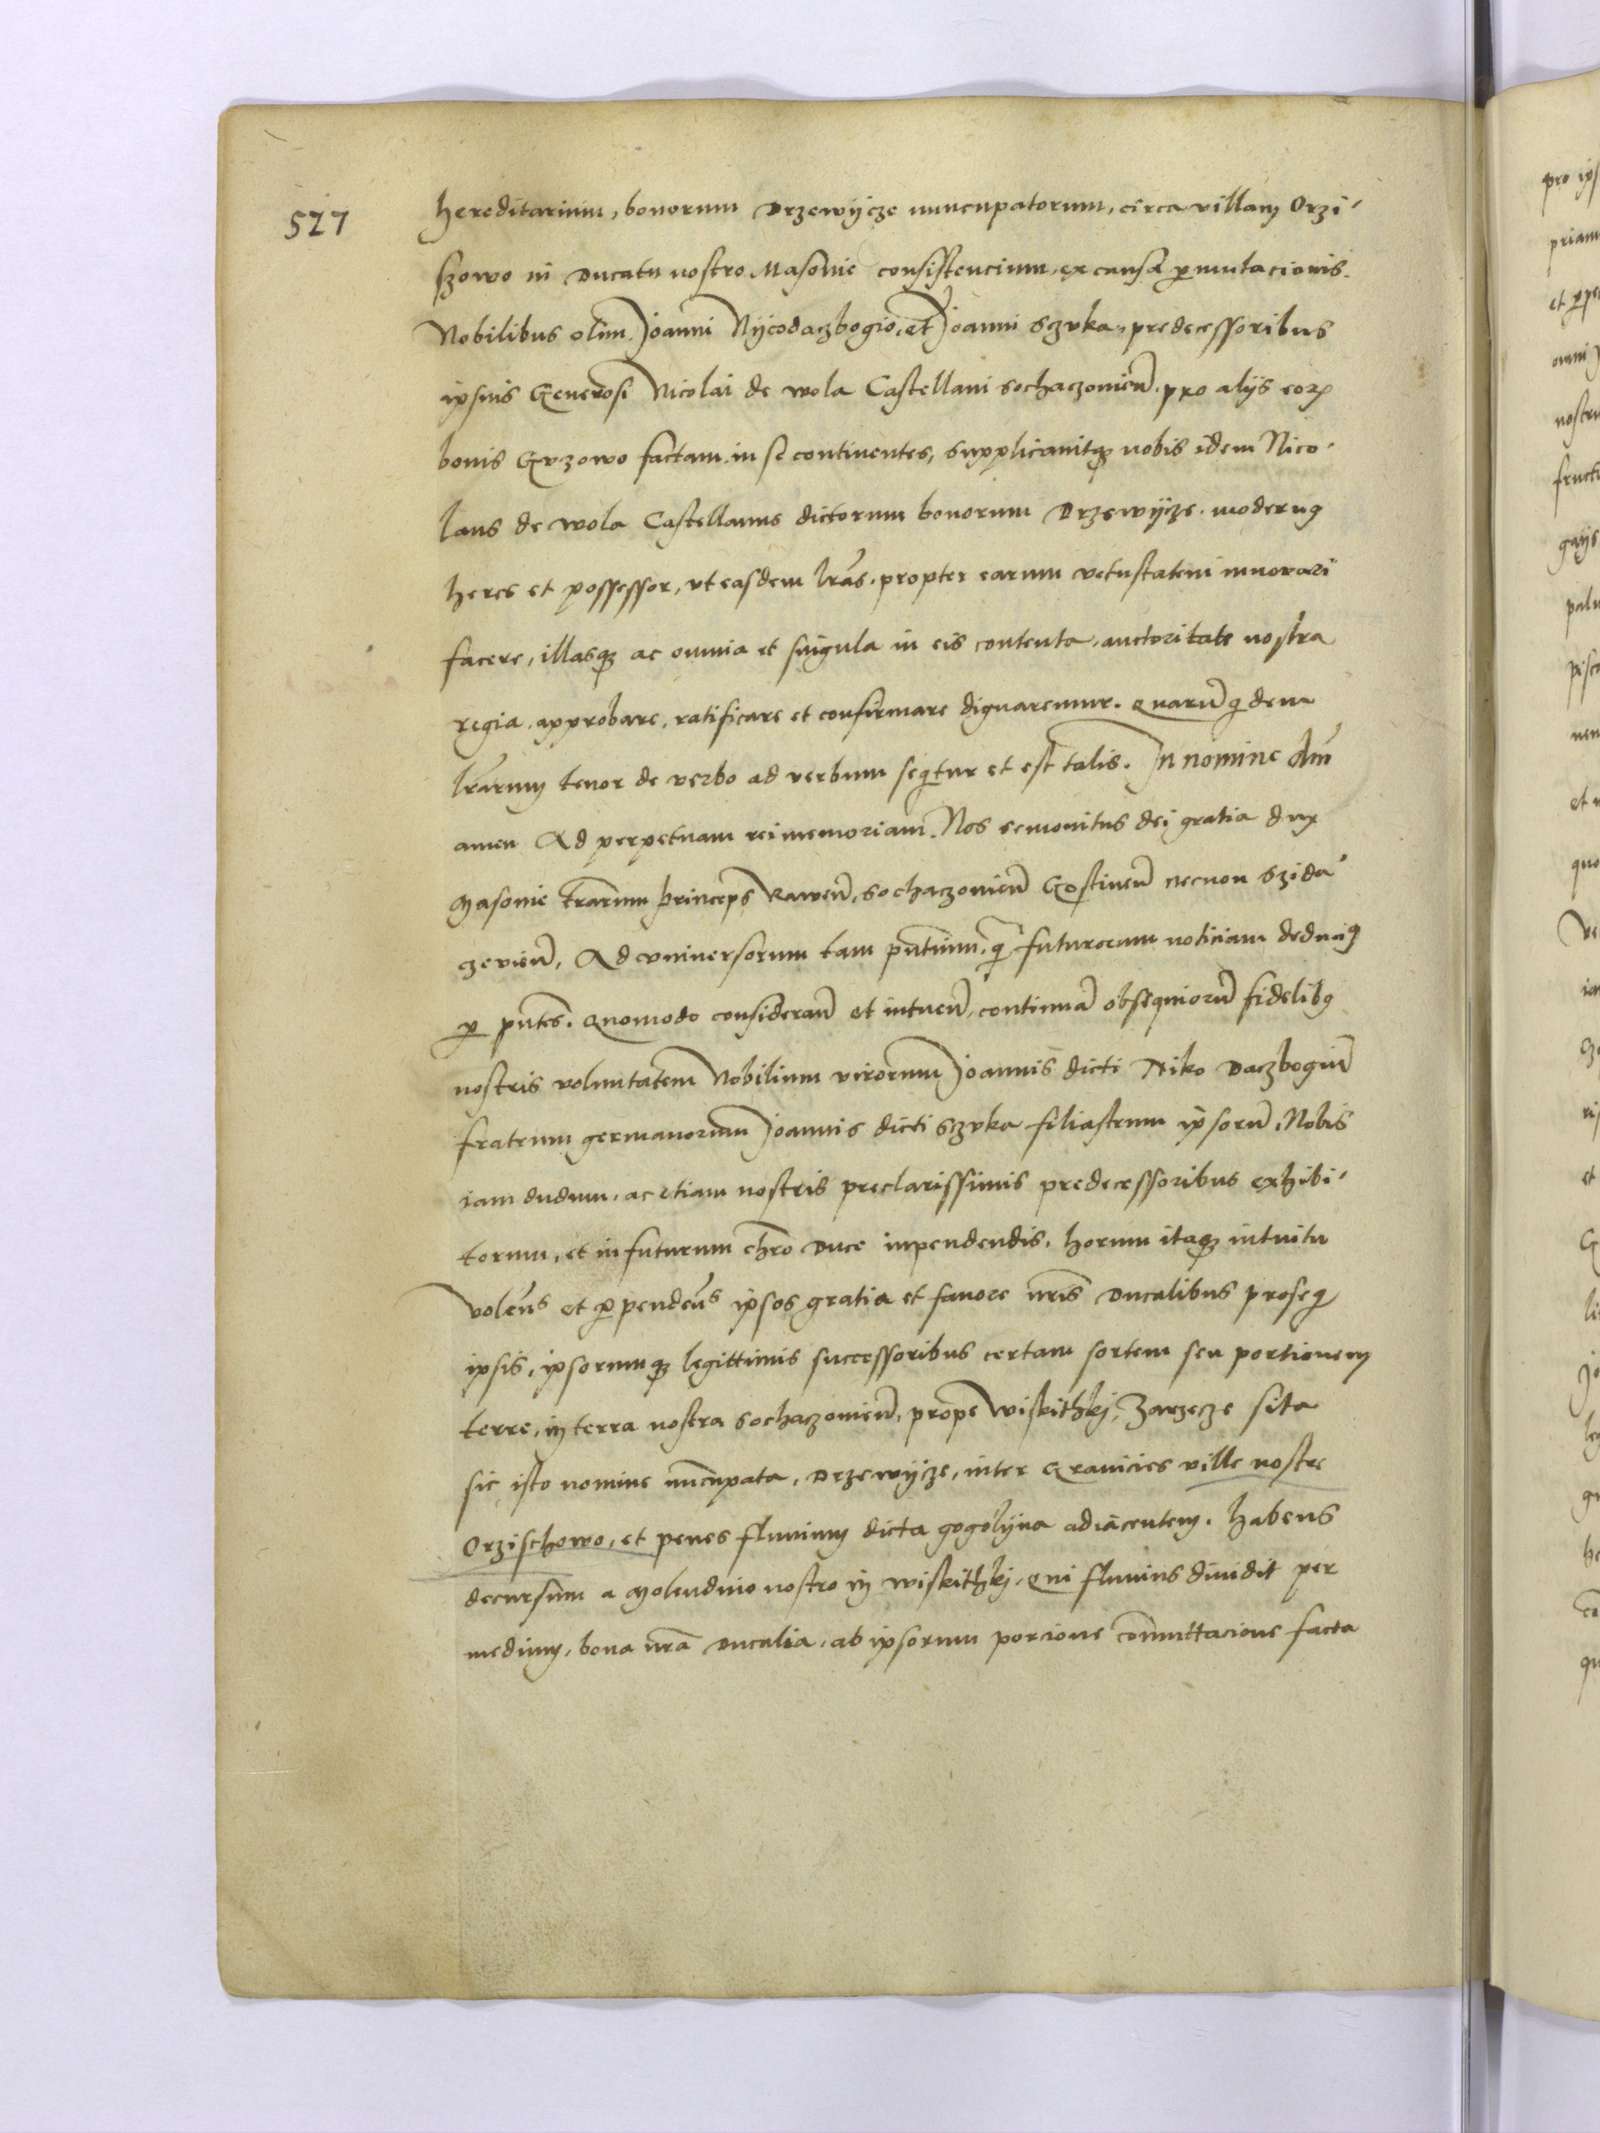 527
hereditarium, bonorum Drzewycze nuncupatorum, circa villam Orzi-
szowo in Ducatu nostro Masovie consistencium, ex causa p̱mutacionis.
Nobilibus olim Joanni Nycodaczbogio, et Joanni Sczuka, predecessoribus
ipsius Generosi Nicolai de wola Castellani sochaczovień. pro alijs eoꝝ
bonis Gvzowo factam, in se continentes, supplicavitqꝫ nobis idem Nico-
laus de wola Castellanus dictorum bonorum Drzewycze modernꝰ
heres et possessor, ut easdem lr̃as, propter earum vetustatem innovari
facere, illasqꝫ ac omnia et singula in eis contenta, auctoritate nostra
regia, approbare, ratificare et confirmare dignaremur. Quarũqͥdem
lr̃arum tenor de verbo ad verbum seqͥtur et est talis. In nomine dñi
amen Ad perpetuam rei memoriam. Nos semovitus dei gratia dux
Masovie tr̃arum princeps Raweñ, sochaczovieñ Gostineñ necnon Szida-
czevieñ, Ad universorum tam pñtium, qͣ futurorum noticiam deducimꝰ
p̱ pñtes. Quomodo considerañ et intueñ, continuã obsequiorũ fidelibꝰ
nostris voluntatem Nobilium virorum Joannis dicti Niko Daczboguiñ
fratrum germanorum Joannis dicti Sczuka filiastrum ipsorũ, Nobis
iam dudum, ac etiam nostris preclarissimis predecessoribus exhibi-
torum, et in futurum chr̃o Duce inpendendis, horum itaqꝫ intuitu
voleñs et p̱pendeñs ipsos gratia et favore nr̃is Ducalibus proseqͥ
ipsis, ipsorumqꝫ legittimis successoribus certam sortem seu portionem
terre, in terra nostra sochaczovieñ, prope Wiskithkj, Zarzecze sita
sic isto nomine nũcupata, Drzewycze, inter Granicies ville nostre
Orzischowo, et penes fluvium dicta gogolyna adiacentem. habens
decursum a Molendino nostro in wiskithkj, Qui fluvius dividit per
medium, bona nr̃a Ducalia, ab ipsorum porcione com̃uttacione facta